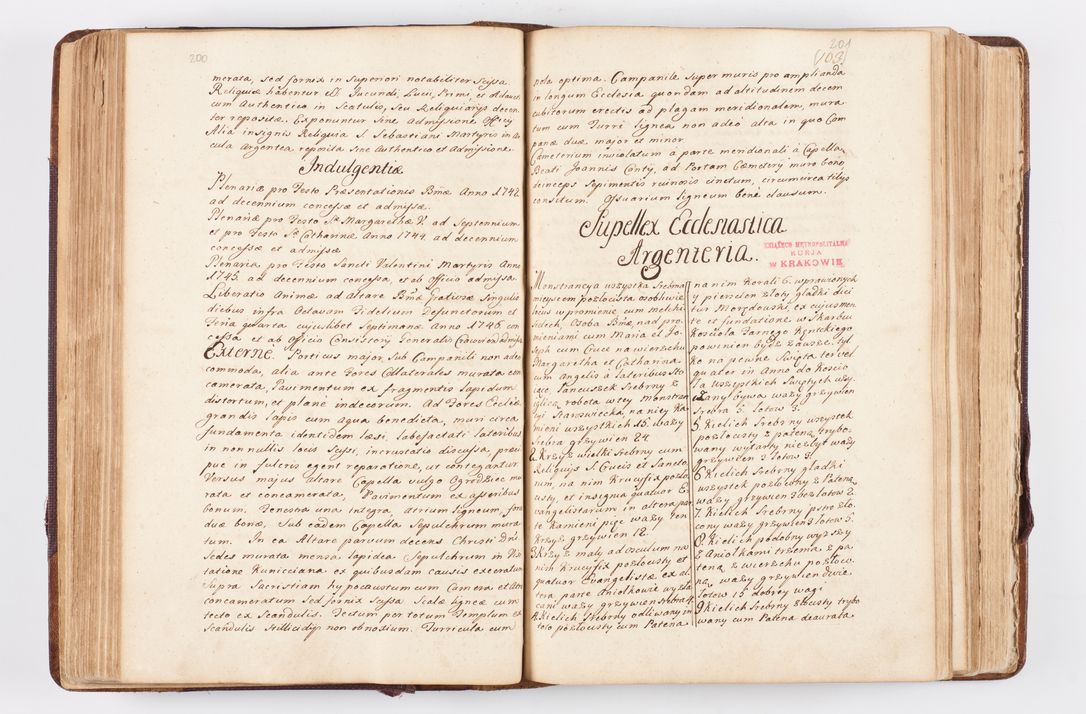 200
merata, sed fornix in superiori notabiliter scissa.
Reliquiæ habentur SS. Jucundi, Luci, Primi, et
cum Authentico in Scatulis, seu Reliquiarijs decen
ter repositæ. Exponuntur sine Admissione Officij
Alia insignis Reliquia S. Sebastiani Martyris in
cula Argentea reposita sine Authentico et Admissione.
Indulgentiæ
Plenariæ pro Festo Præsentationis Bmæ Anno 1742
ad decennium concessæ et admissæ.
Plenariæ pro Festo Stæ Margarethæ V. ad Septennium
et pro Festo Stæ Catharinæ Anno 1744. ad decennium
concessæ et admissæ
Plenaria pro Festo Sancti Valentini Martyris Anno
1745. ad decennium concessa, et ab Officio admissa.
Liberatio Animæ ad altare Bmæ Gratiosæ Singulis
diebus infra Octavam Fidelium Defunctorum et
Feria quarta cujuslibet Septimanæ Anno 1746. con
cessa et ab Officio Consistorij Generalis Cracovien admissa
Externe. Porticus major sub Campanili non adeo
commoda, alia ante Fores Collaterales murata con
camerata, Pavimentum ex fragmentis lapidum
distortum, et planè indecorum. Ad Fores Ecclesiæ
grandis lapis cum aqua benedicta, muri circa
fundamenta identidem læsi, labefactati lateribus
in nonnullis locis scissi, incrustatio discussa, præci
pue in fulcris egent reparatione, ut contegantur
Versus majus altare Capella vulgo Ogrodziec mu
rata et concamerata, Pavimentum ex asseribus
bonum. Fenestra una integra, atrium ligneum, fores
duæ bonæ, Sub eadem Capella Sepulchrum mura
tum. In ea Altare parvum decens Christi Dni
Sedes murata mensa lapidea Sepulchrum in Vis
tatione Kunicciana ex quibusdam causis execratum
Supra Sacristiam hypocaustum cum Camera et Atrio
concamoratum sed fornix scissa Scalæ ligneæ cum
tecto ex Scandulis. Tectum per totum Templum ex
Scandulis stillicidijs non obnoxium. Turricula cum
201
(103)
nola optima. Campanile super muris pro amplianda
in longum Ecclesia quondam ad altitudinem decem
cubitorum erectis ad plagam meridionalem, mura
tum cum Turri lignea non adeò alta in quo Cam
panæ duæ major et minor
Cæmeterium inviolatum à parte meridionali à Capella
Beati Joannis Canty, ad Portam Cæmeterij muro bono
deinceps sepimentis ruinosis cinctum, circumcirca tilijs
consitum. Ossuarium ligneum benè clausum.
Supellex Ecclesiastica
Argenteria.
KSIĄŻĘCO METROPOLITALNA
KURJA
w KRAKOWIE
Monstrancya wszystka Srebrna
mieyscem pozłocista osobliwie
licus w promienie, cum melchi
sidech, Osoba Bmæ, nad pro
mieniami cum Maria et Jo
seph cum Cruce na wierzchu
Margaretha et Catharina
cum Angelis à lateribus sto
iące Łancuszek Srebrny z
iglicą robota w tey monstran
cyi Staroswiecka, na niey Ka
mieni wszystkich 15. wazy
Srebra grzywien 24
2. Krzyż wielki Srebrny cum
Reliquijs S. Crucis et Sancto
rum, na nim Krucyfix pozło
cisty, et insignia quatuor E
vangelistarum in altera par
te Kamieni pięc wazy ten
Krzyz grzywien 12.
3. Krzyż maly ad osculum na
nim Krucyfix pozłocisty et
quatuor Evangelistæ ex al
tera parte Aniołkowie wyzła
cani wazy grzywien srebra 4.
4. Kielich Srebrny odliwany in
toto pozłocisty cum Patena
na nim Korali 6. wprawionych
y pierscien złoty gładki dici
tur MoręDowski, ex cujusmen
te et fundatione w Skarbcu
Kosciola Farnego Kęntckiego
powinien bydz zawsze, tyl
ko na pewne Swięta tervel
quater in Anno do Koscio
la Wszystkich Swiętych uży
czany bywa wazy grzywien
Srebra 5. lotow 3.
5. Kielich Srebrny wszystek
pozłocisty z pateną trybo
wany wytarty niezbyt wazy
grzywien 2 lotow 3.
6. Kielich Srebrny gładki
wszystek pozłocony z Pateną
wazy grzywien 3 bez lotow 2.
7. Kielich Srebrny pstro zło
cony wazy grzywien 3 lotow 5.
8. Kielich podobny wyzszy
z Aniołkami trzema z pa
teną z wierzchu pozłoco
ną, wazy grzywien dwie.
lotow 15 dobrey wagi
9. Kielich Srebrny złocisty trybo
wany cum Patena deaurata